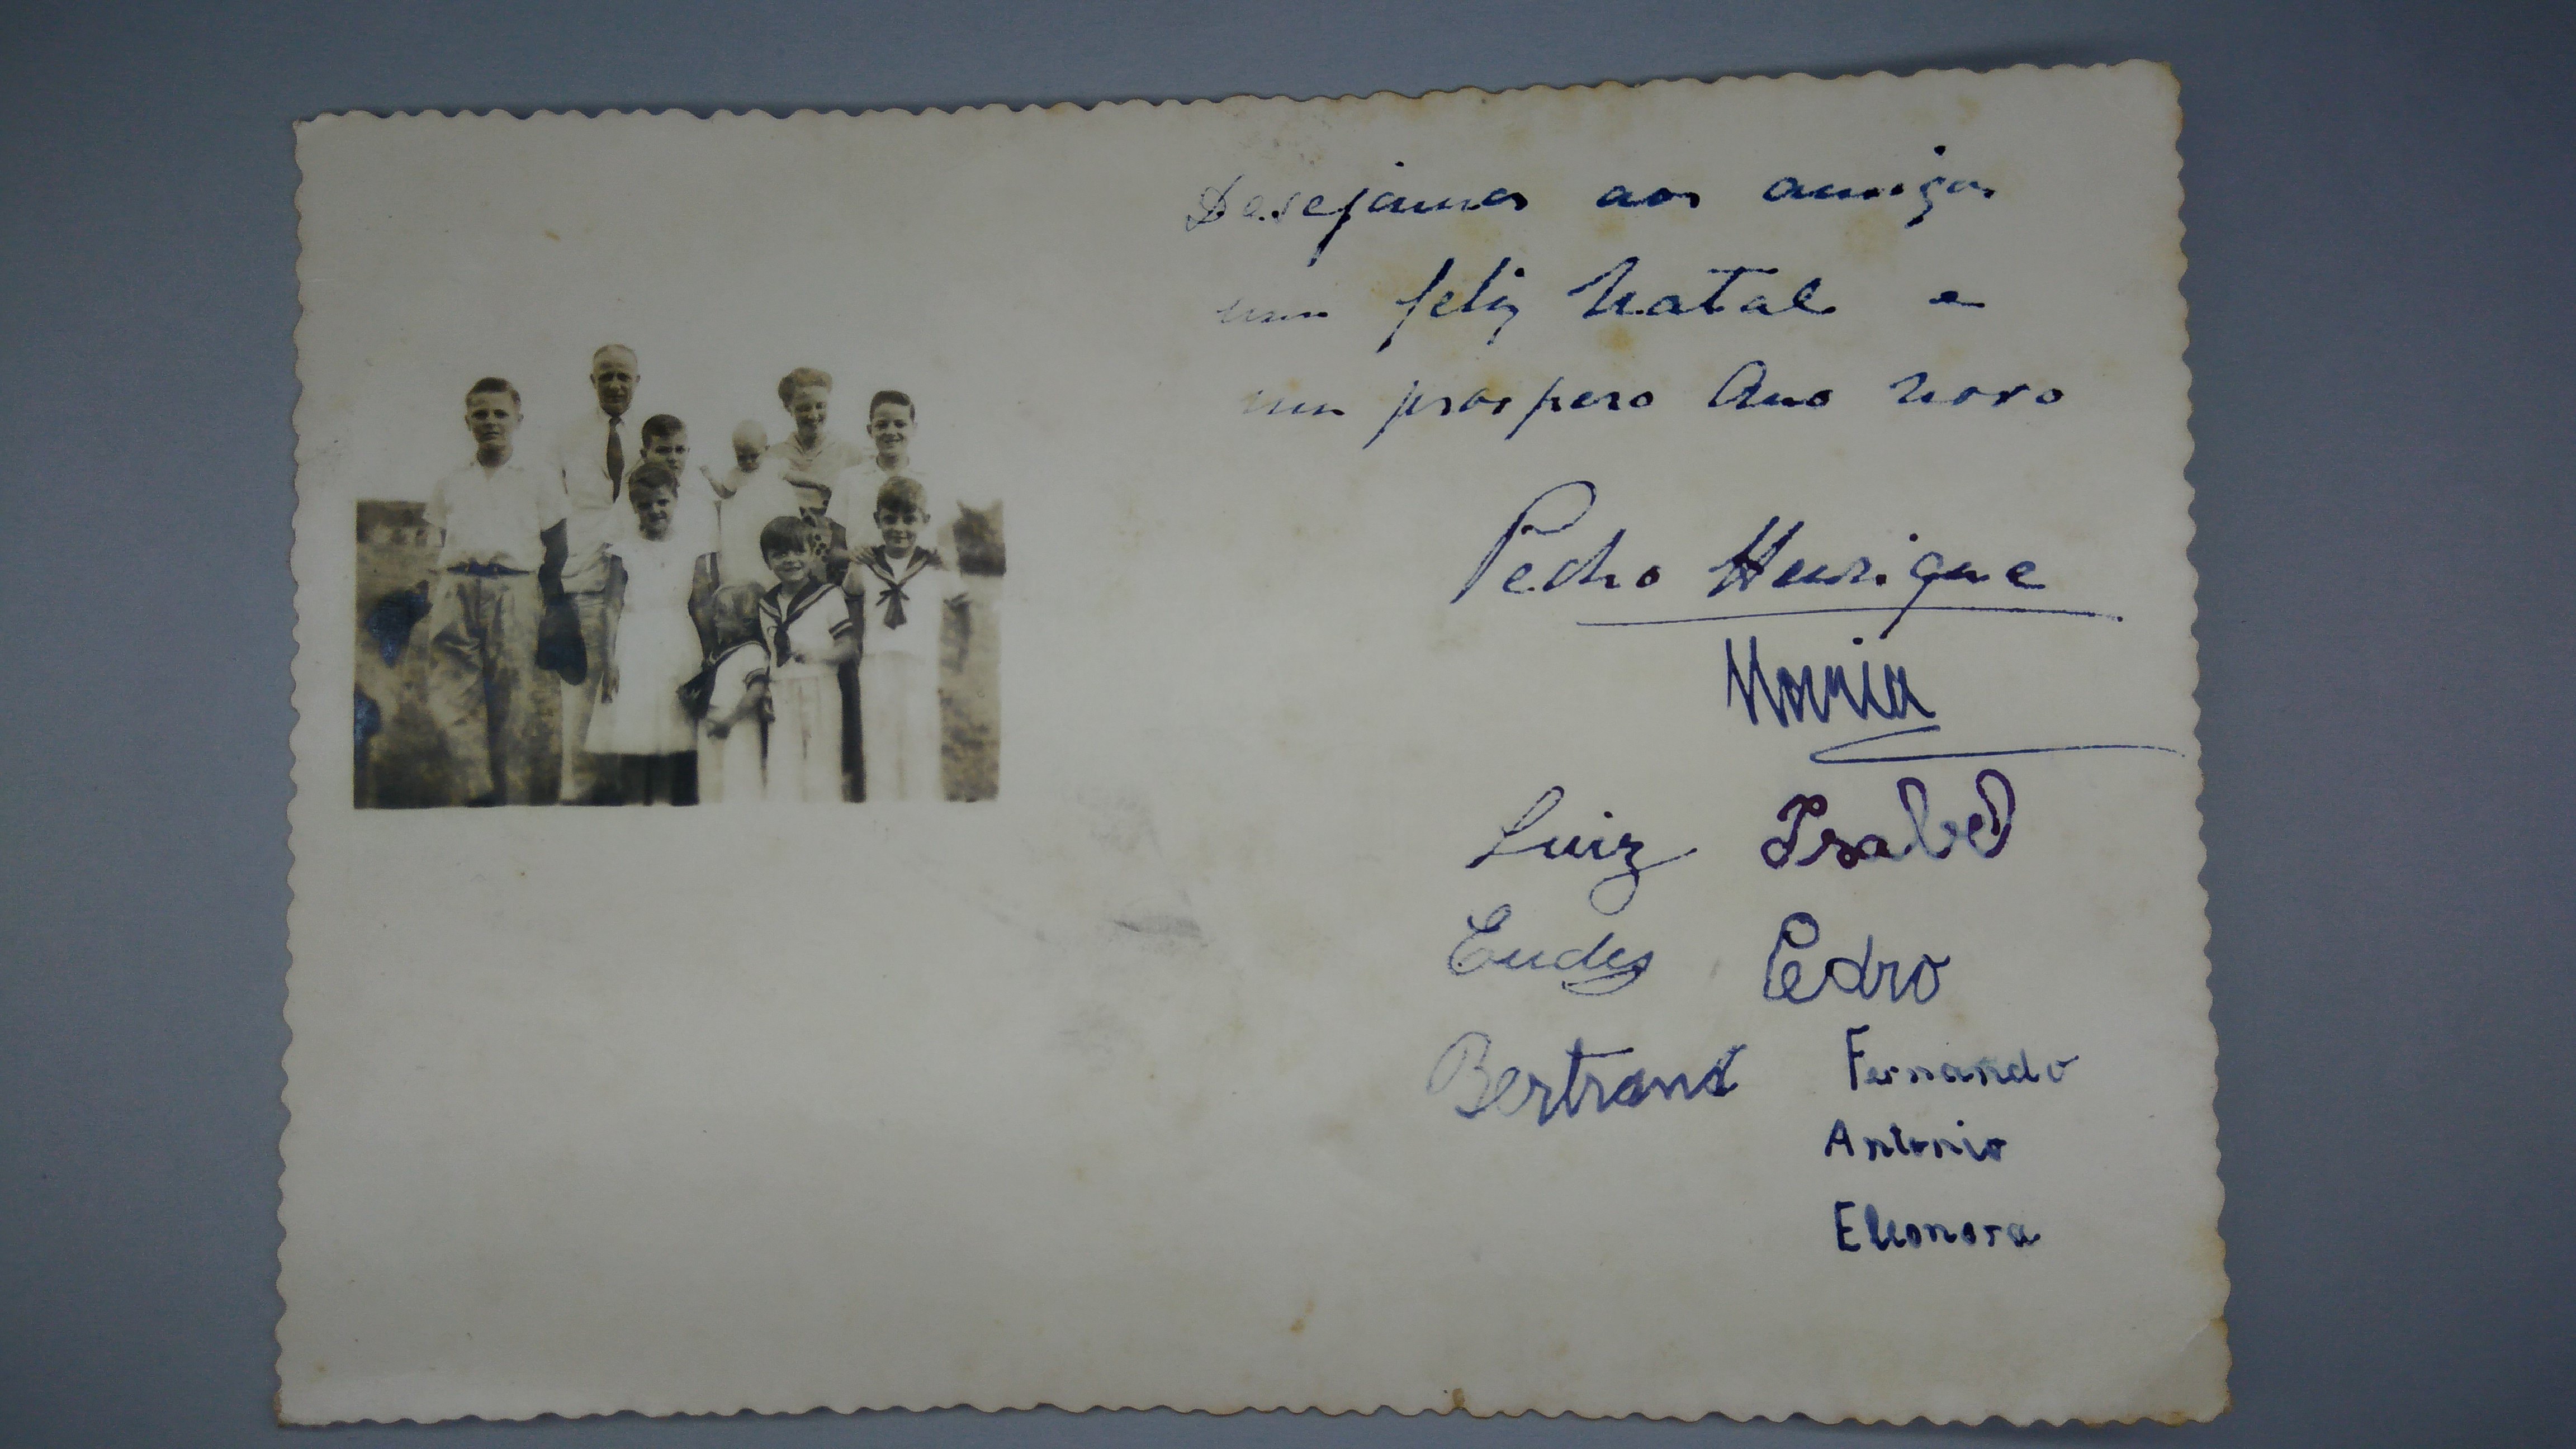 Desejamos aos amigos
um feliz Natal e
um prospero Ano novo
Pedro Henrique
Maria
Luiz Isabel
Eudes Pedro
Bertrand Fernando
Antonio
Eleonora